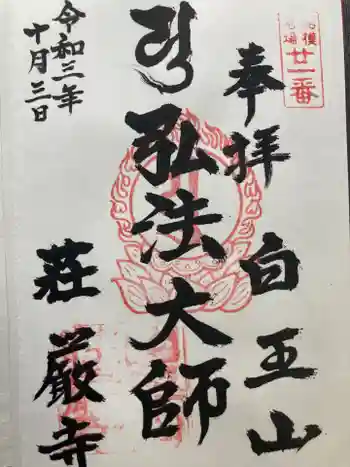 奉拝
白王山
弘法大師
荘厳寺
令和三年
十月三日
廿一番